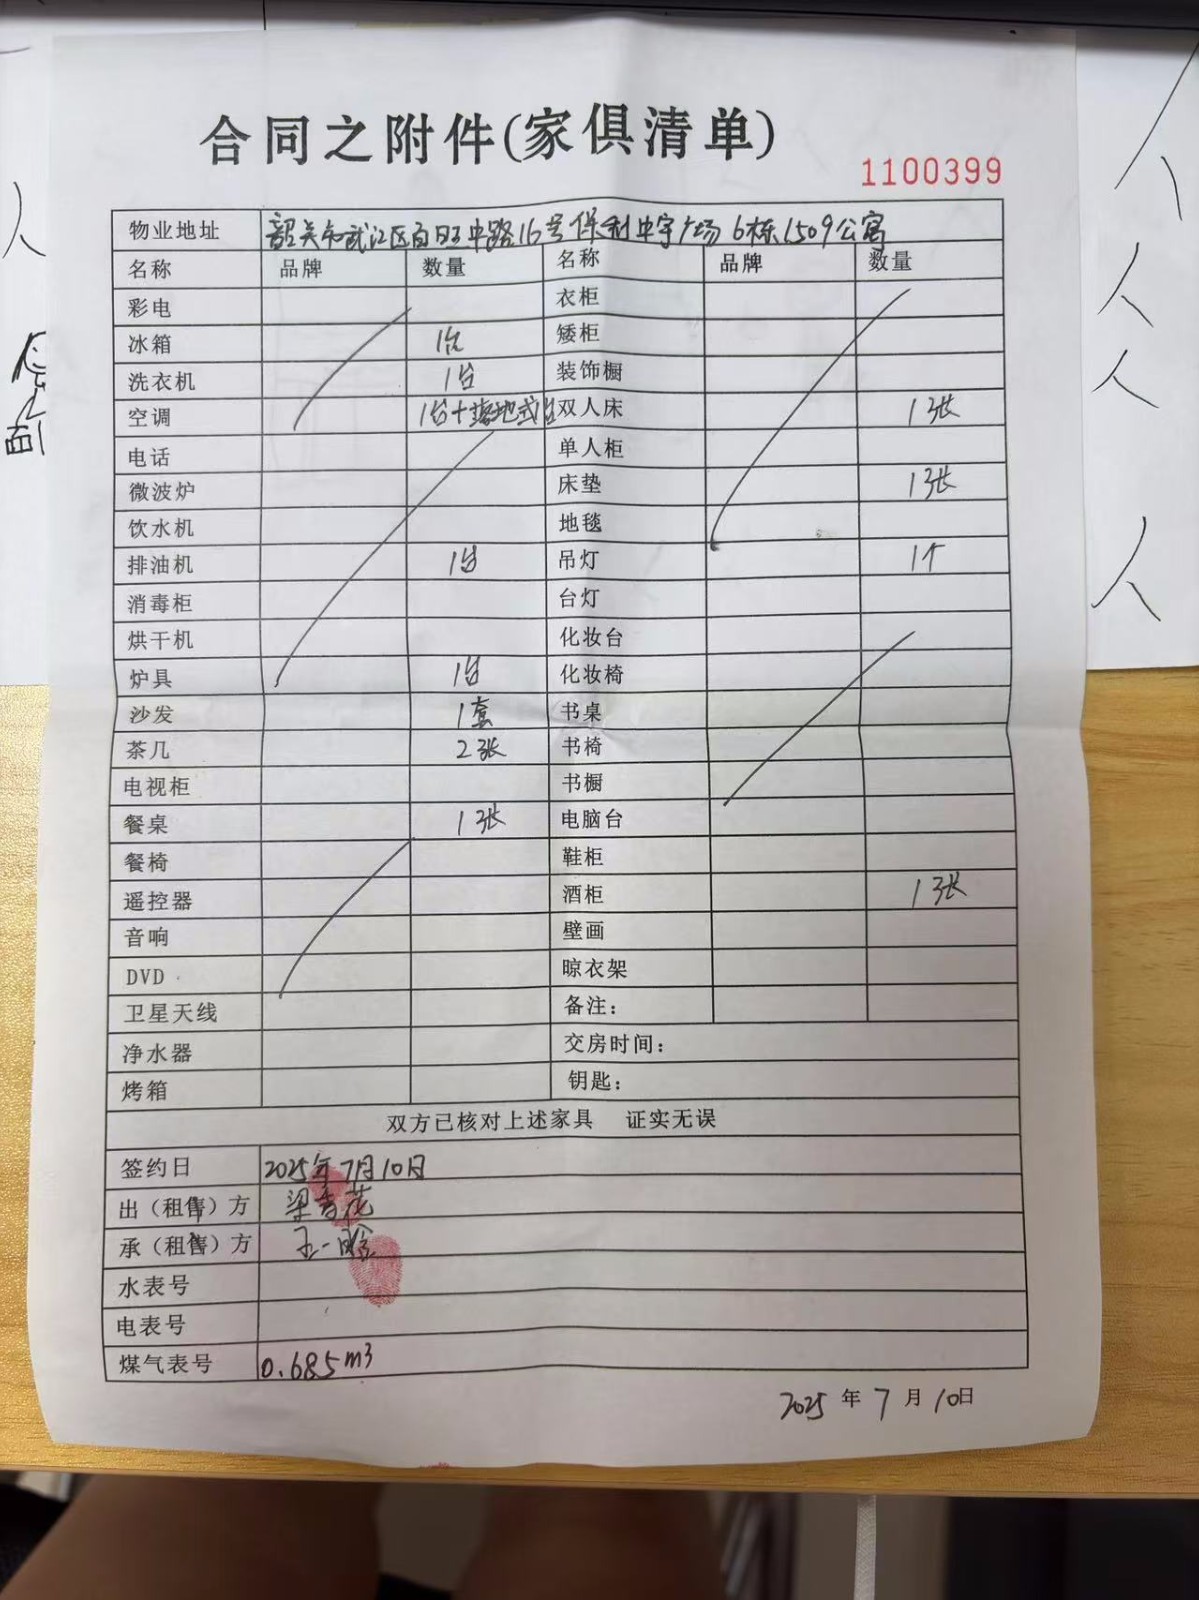 合同之附件(家俱清单)
1100399
物业地址 韶关市武江区百旺中路16号保利中宇广场6栋1509公寓
名称 品牌 数量 名称 品牌 数量
彩电 衣柜
冰箱 1台 矮柜
洗衣机 1台 装饰橱
空调 1台+落地式1台 双人床 1张
电话 单人柜
微波炉 床垫 1张
饮水机 地毯
排油机 1台 吊灯 1个
消毒柜 台灯
烘干机 化妆台
炉具 1台 化妆椅
沙发 1套 书桌
茶几 2张 书椅
电视柜 书橱
餐桌 1张 电脑台
餐椅 鞋柜
遥控器 酒柜 1张
音响 壁画
DVD 晾衣架
卫星天线 备注:
净水器 交房时间:
烤箱 钥匙:
双方已核对上述家具 证实无误
签约日 2025年7月10日
出(租售)方 梁杏花
承(租售)方 王一晗
水表号
电表号
煤气表号 0.685m3
2025年7月10日
人
面
人
人
人
人